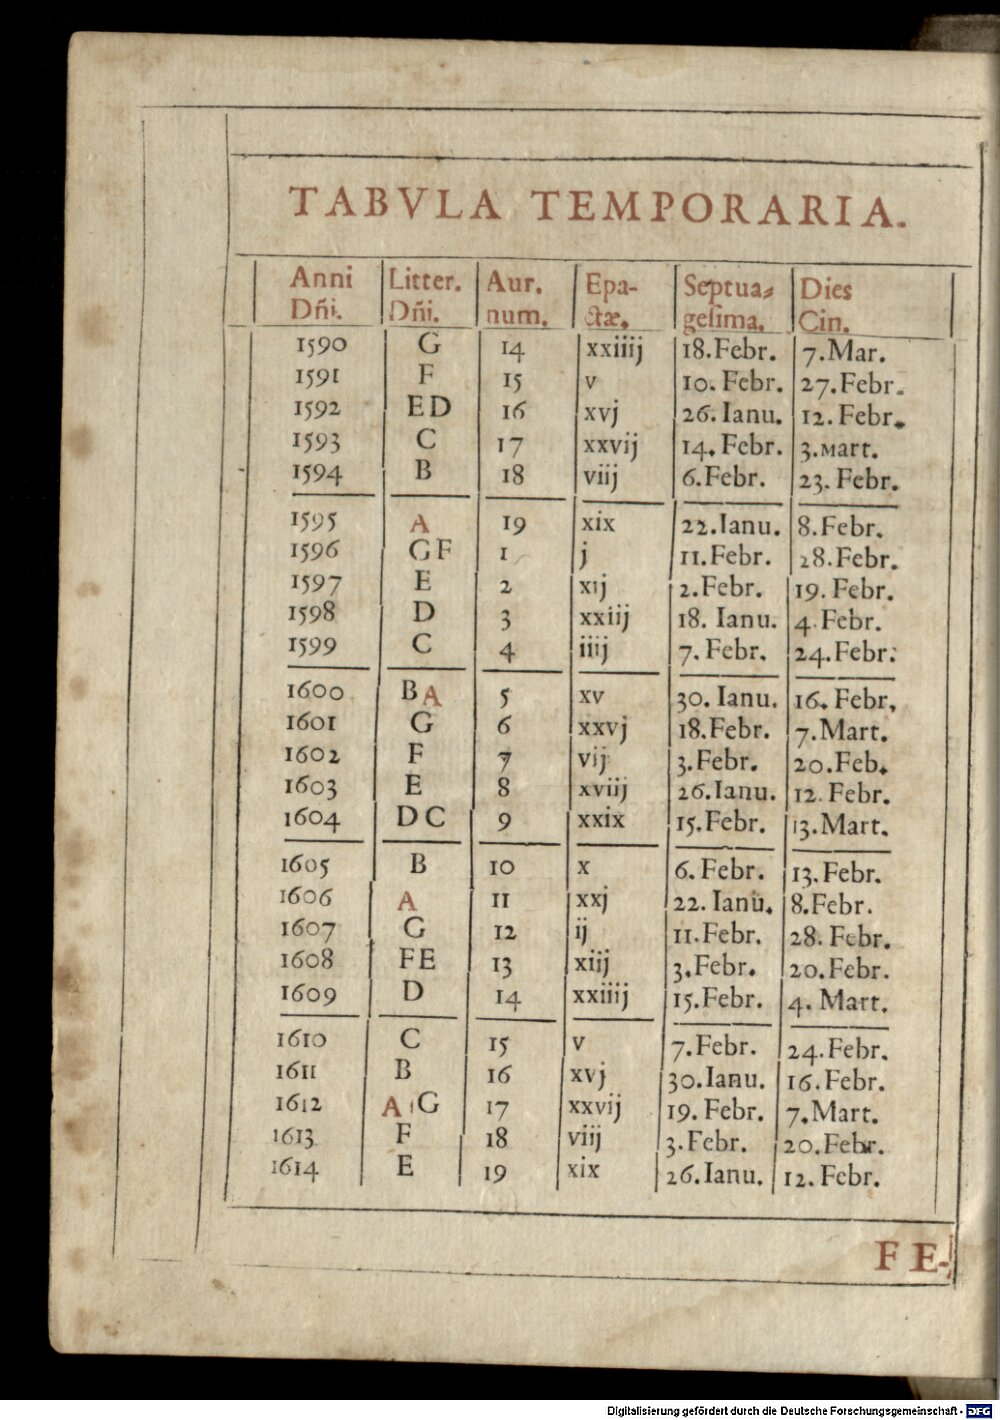 TABVLA TEMPORARIA.
Anni Dñi. Litter. Dñi. Aur. num. Epa- ctæ. Septua= gesima. Dies Cin.
1590 G 14 xxiiij 18.Febr. 7.Mar.
1591 F 15 v 10. Febr. 27.Febr.
1592 ED 16 xvj 26. Ianu. 12. Febr.
1593 C 17 xxvij 14. Febr. 3.Mart.
1594 B 18 viij 6.Febr. 23. Febr.
1595 A 19 xix 22.Ianu. 8.Febr.
1596 GF 1 j 11.Febr. 28.Febr.
1597 E 2 xij 2.Febr. 19. Febr.
1598 D 3 xxiij 18. Ianu. 4.Febr.
1599 C 4 iiij 7. Febr. 24.Febr.
1600 BA 5 xv 30. Ianu. 16. Febr.
1601 G 6 xxvj 18.Febr. 7.Mart.
1602 F 7 vij 3.Febr. 20.Feb.
1603 E 8 xviij 26.Ianu. 12. Febr.
1604 DC 9 xxix 15.Febr. 13.Mart.
1605 B 10 x 6. Febr. 13.Febr.
1606 A 11 xxj 22. Ianu. 8.Febr.
1607 G 12 ij 11.Febr. 28. Febr.
1608 FE 13 xiij 3.Febr. 20.Febr.
1609 D 14 xxiiij 15.Febr. 4. Mart.
1610 C 15 v 7.Febr. 24.Febr.
1611 B 16 xvj 30.Ianu. 16.Febr.
1612 A G 17 xxvij 19. Febr. 7.Mart.
1613 F 18 viij 3.Febr. 20.Febr.
1614 E 19 xix 26.Ianu. 12. Febr.
FE-
Digitalisierung gefördert durch die Deutsche Forschungsgemeinschaft - DFG